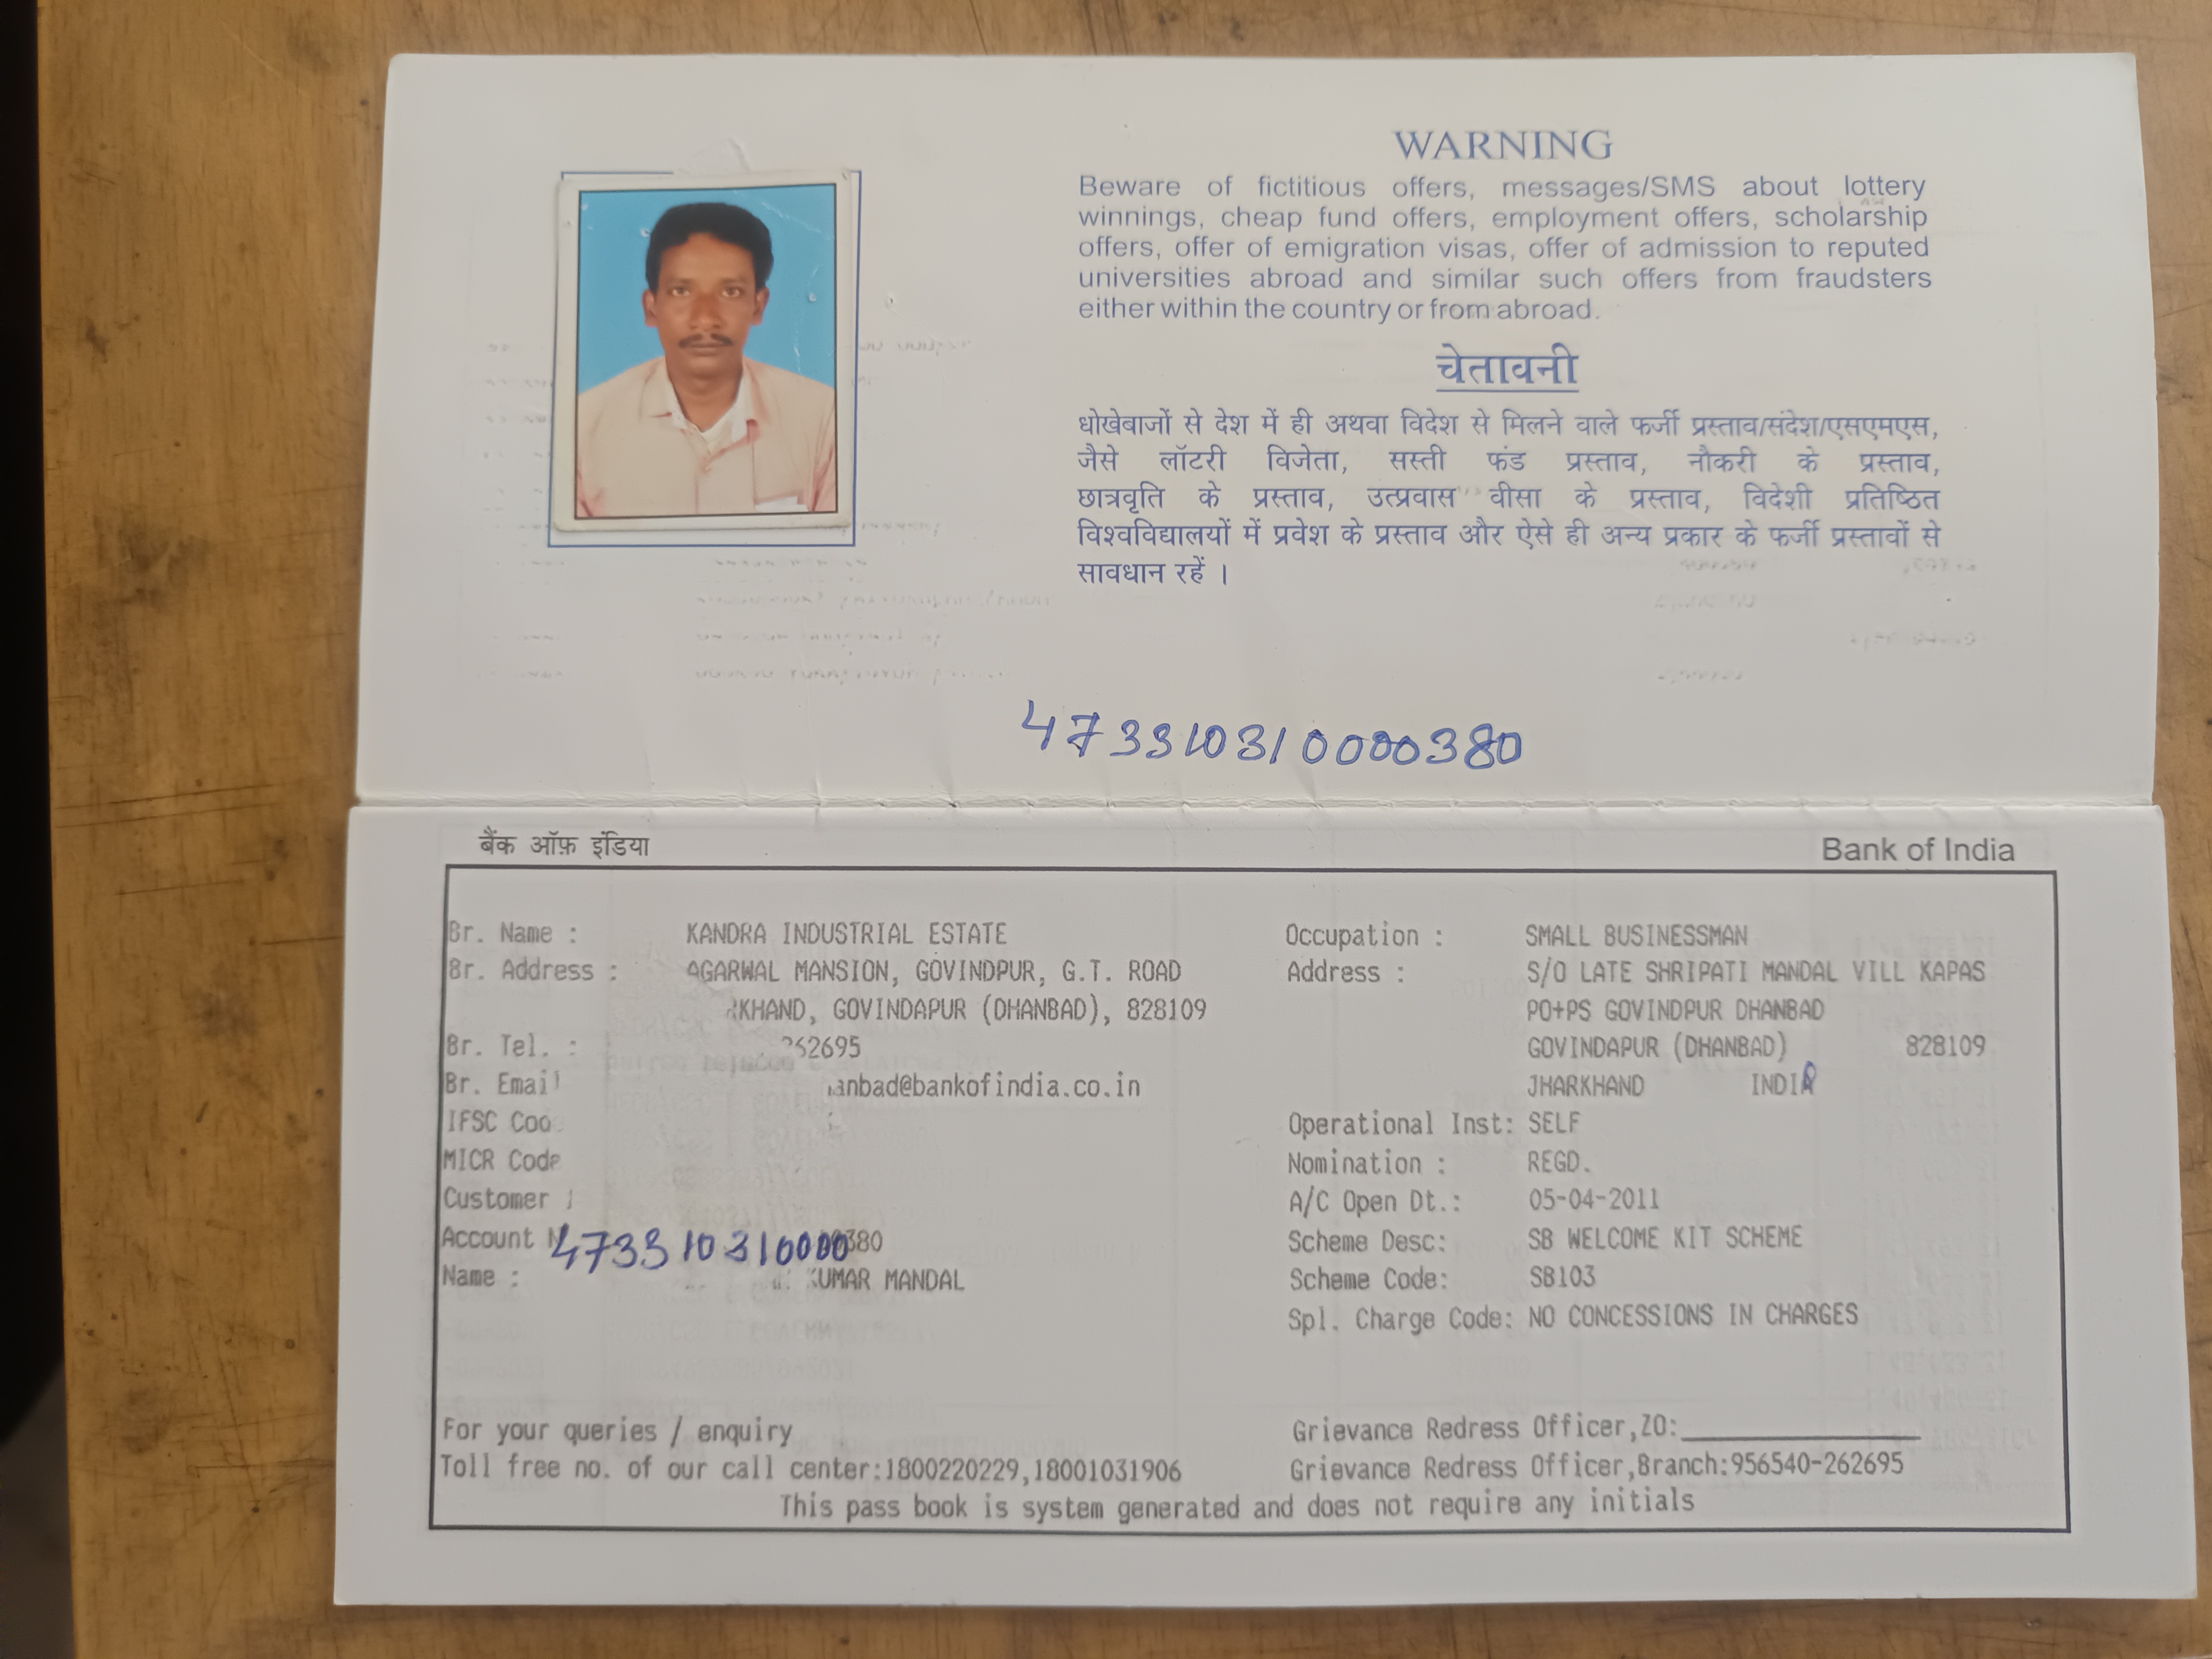 WARNING
Beware of fictitious offers, messages/SMS about lottery
winnings, cheap fund offers, employment offers, scholarship
offers, offer of emigration visas, offer of admission to reputed
universities abroad and similar such offers from fraudsters
either within the country or from abroad.
चेतावनी
धोखेबाजों से देश में ही अथवा विदेश से मिलने वाले फर्जी प्रस्ताव/संदेश/एसएमएस,
जैसे लॉटरी विजेता, सस्ती फंड प्रस्ताव, नौकरी के प्रस्ताव,
छात्रवृति के प्रस्ताव, उत्प्रवास वीसा के प्रस्ताव, विदेशी प्रतिष्ठित
विश्वविद्यालयों में प्रवेश के प्रस्ताव और ऐसे ही अन्य प्रकार के फर्जी प्रस्तावों से
सावधान रहें ।
473310310000380
बैंक ऑफ़ इंडिया Bank of India
Br. Name : KANDRA INDUSTRIAL ESTATE Occupation : SMALL BUSINESSMAN
Br. Address : AGARWAL MANSION, GOVINDPUR, G.T. ROAD Address : S/O LATE SHRIPATI MANDAL VILL KAPAS
GOVINDAPUR (DHANBAD), 828109 PO+PS GOVINDPUR DHANBAD
Br. Tel. : GOVINDAPUR (DHANBAD) 828109
Br. Email JHARKHAND INDIA
IFSC Operational Inst: SELF
MICR Code Nomination : REGD.
Customer A/C Open Dt.: 05-04-2011
Account 473310310000380 Scheme Desc: SB WELCOME KIT SCHEME
Name : KUMAR MANDAL Scheme Code: SB103
Spl. Charge Code: NO CONCESSIONS IN CHARGES
For your queries / enquiry Grievance Redress Officer,ZO:
Toll free no. of our call center:1800220229,18001031906 Grievance Redress Officer,Branch:956540-262695
This pass book is system generated and does not require any initials